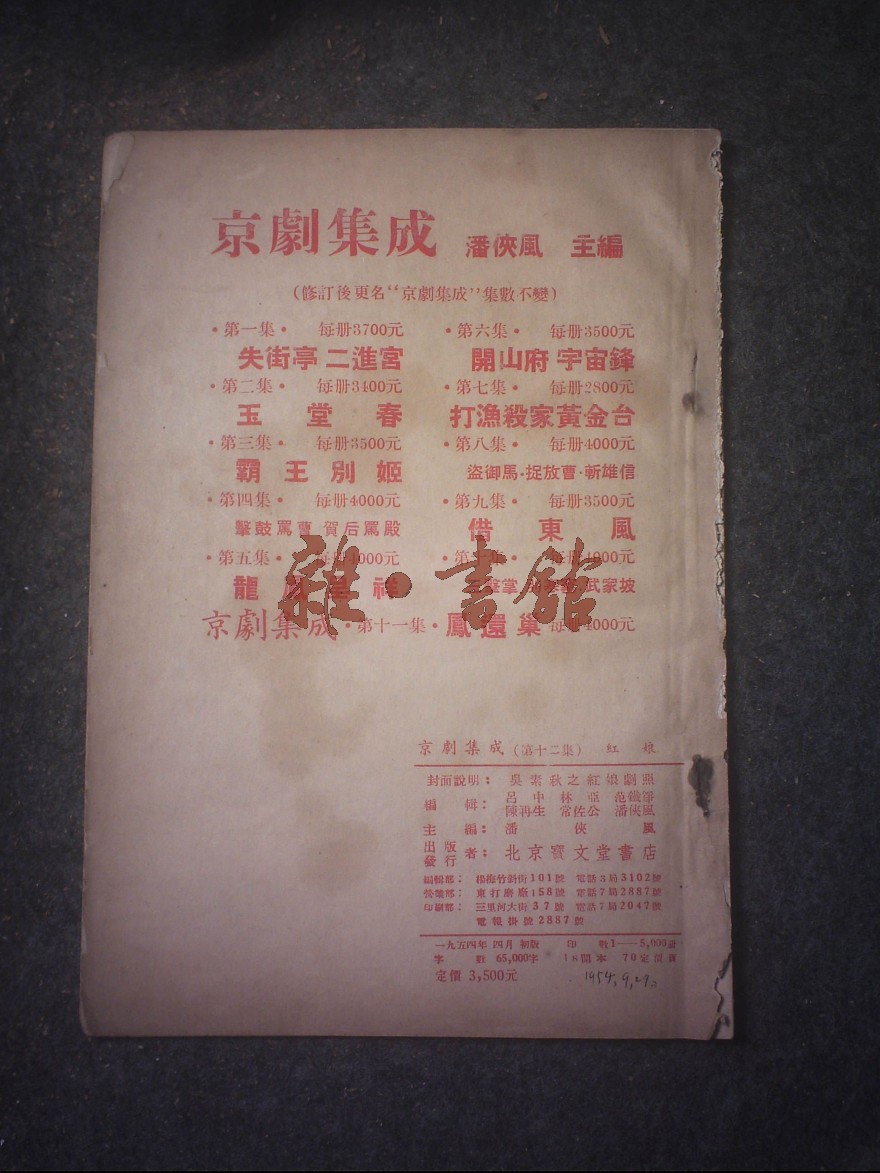 京劇集成 潘俠風 主編
(修訂後更名“京劇集成”集數不變)
·第一集· 每册3700元
失街亭 二進宮
·第二集· 每册3400元
玉堂春
·第三集· 每册3500元
霸王別姬
·第四集· 每册4000元
擊鼓罵曹 賀后罵殿
·第五集· 每册4000元
龍 祥
·第六集· 每册3500元
開山府 宇宙鋒
·第七集· 每册2800元
打漁殺家黃金台
·第八集· 每册4000元
盜御馬·捉放曹·斬雄信
·第九集· 每册3500元
借東風
·第 每册4000元
擊掌 武家坡
京劇集成·第十一集·鳳還巢 每册4000元
雜·書館
京劇集成(第十二集) 紅娘
封面說明: 吳素秋之紅娘劇照
編輯: 呂中 林亞 范鐵錚
陳再生 常佐公 潘俠風
主編: 潘俠風
出版發行者: 北京寶文堂書店
編輯部: 楊梅竹斜街101號 電話3局3102號
營業部: 東打磨廠158號 電話7局2887號
印刷部: 三里河大街37號 電話7局2047號
電報掛號2887號
一九五四年四月初版 印數1—5,000册
字數 65,000字 18開本 70定價頁
定價 3,500元
1954,9,29。